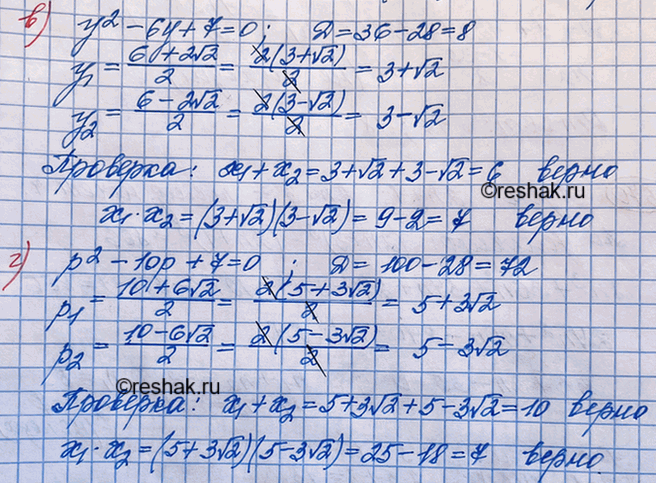 в) y² − 6y + 7 = 0 ; D = 36 − 28 = 8
y₁ = (6 + 2√2)/2 = 2(3+√2)/2 = 3+√2
y₂ = (6 − 2√2)/2 = 2(3−√2)/2 = 3−√2
Проверка: x₁ + x₂ = 3+√2 + 3−√2 = 6 верно
©reshak.ru
x₁ · x₂ = (3+√2)(3−√2) = 9−2 = 7 верно
г) p² − 10p + 7 = 0 ; D = 100 − 28 = 72
p₁ = (10 + 6√2)/2 = 2(5+3√2)/2 = 5+3√2
p₂ = (10 − 6√2)/2 = 2(5−3√2)/2 = 5−3√2
©reshak.ru
Проверка: x₁ + x₂ = 5+3√2 + 5−3√2 = 10 верно
x₁ · x₂ = (5+3√2)(5−3√2) = 25−18 = 7 верно.